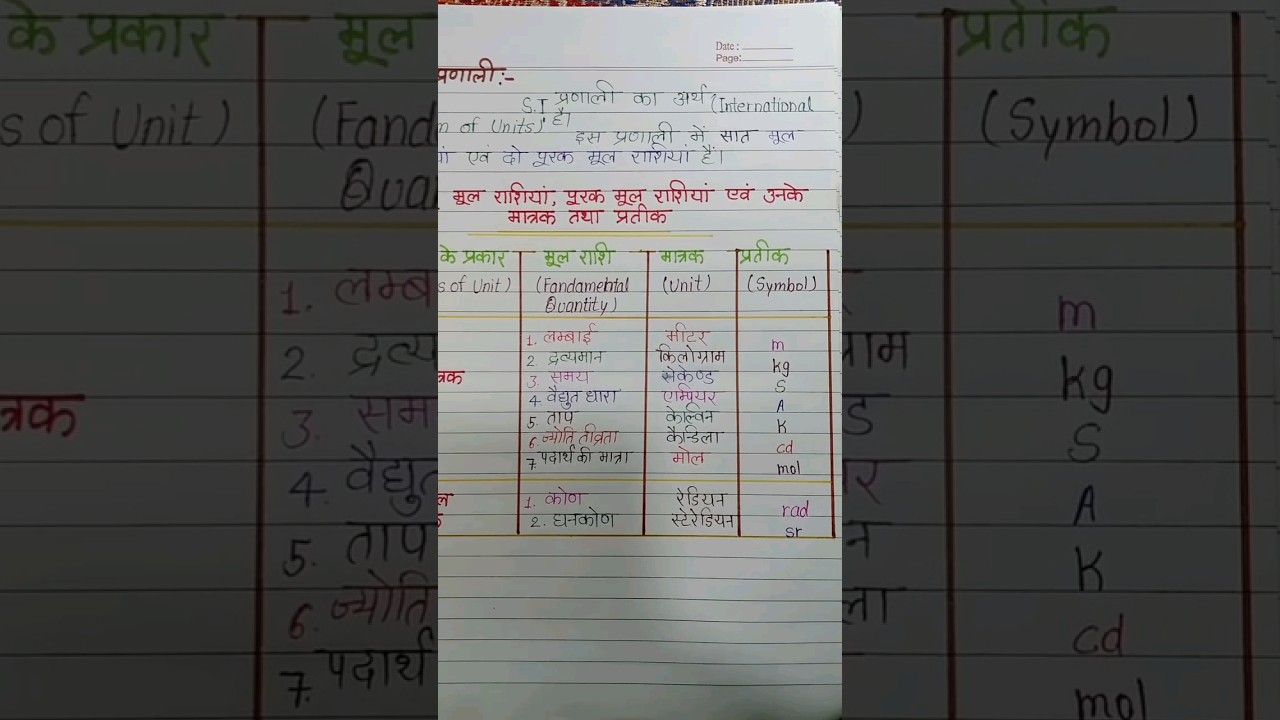 Date :
Page:
प्रणाली:-
S.I प्रणाली का अर्थ (International
of Units) है।
इस प्रणाली में सात मूल
एवं दो पूरक मूल राशियां हैं।
मूल राशियां, पूरक मूल राशियां एवं उनके
मात्रक तथा प्रतीक
के प्रकार मूल राशि मात्रक प्रतीक
s of Unit) (Fandamehtal (Unit) (Symbol)
Quantity)
1. लम्बाई मीटर m
2. द्रव्यमान किलोग्राम kg
3. समय सेकेण्ड S
4 वैद्युत धारा एम्पियर A
5. ताप केल्विन K
6. ज्योति तीव्रता कैन्डिला cd
7. पदार्थ की मात्रा मोल mol
1. कोण रेडियन rad
2. घनकोण स्टेरेडियन sr